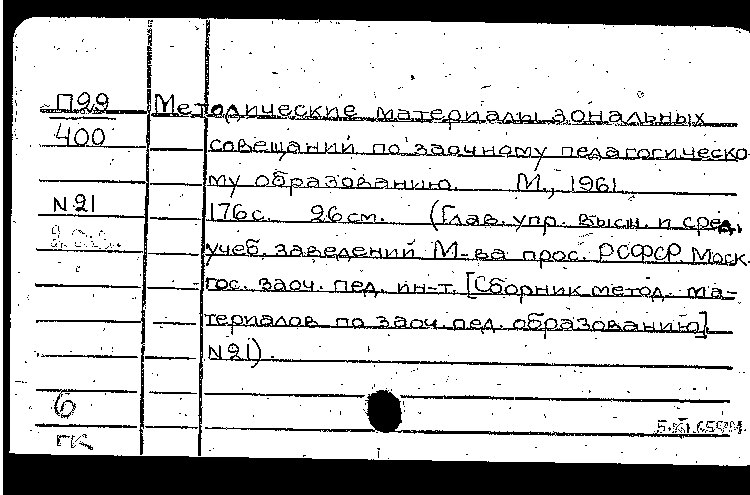 П29 Методические материалы зональных
400 совещаний по заочному педагогическо
му образованию. М., 1961.
N21 176с. 26см. (Глав. упр. высш. и сред.
учеб. заведений М-ва прос. РСФСР. Моск.
гос. заоч. пед. ин-т. [Сборник метод. ма-
териалов по заоч. пед. образованию]
N21).
6
ГК